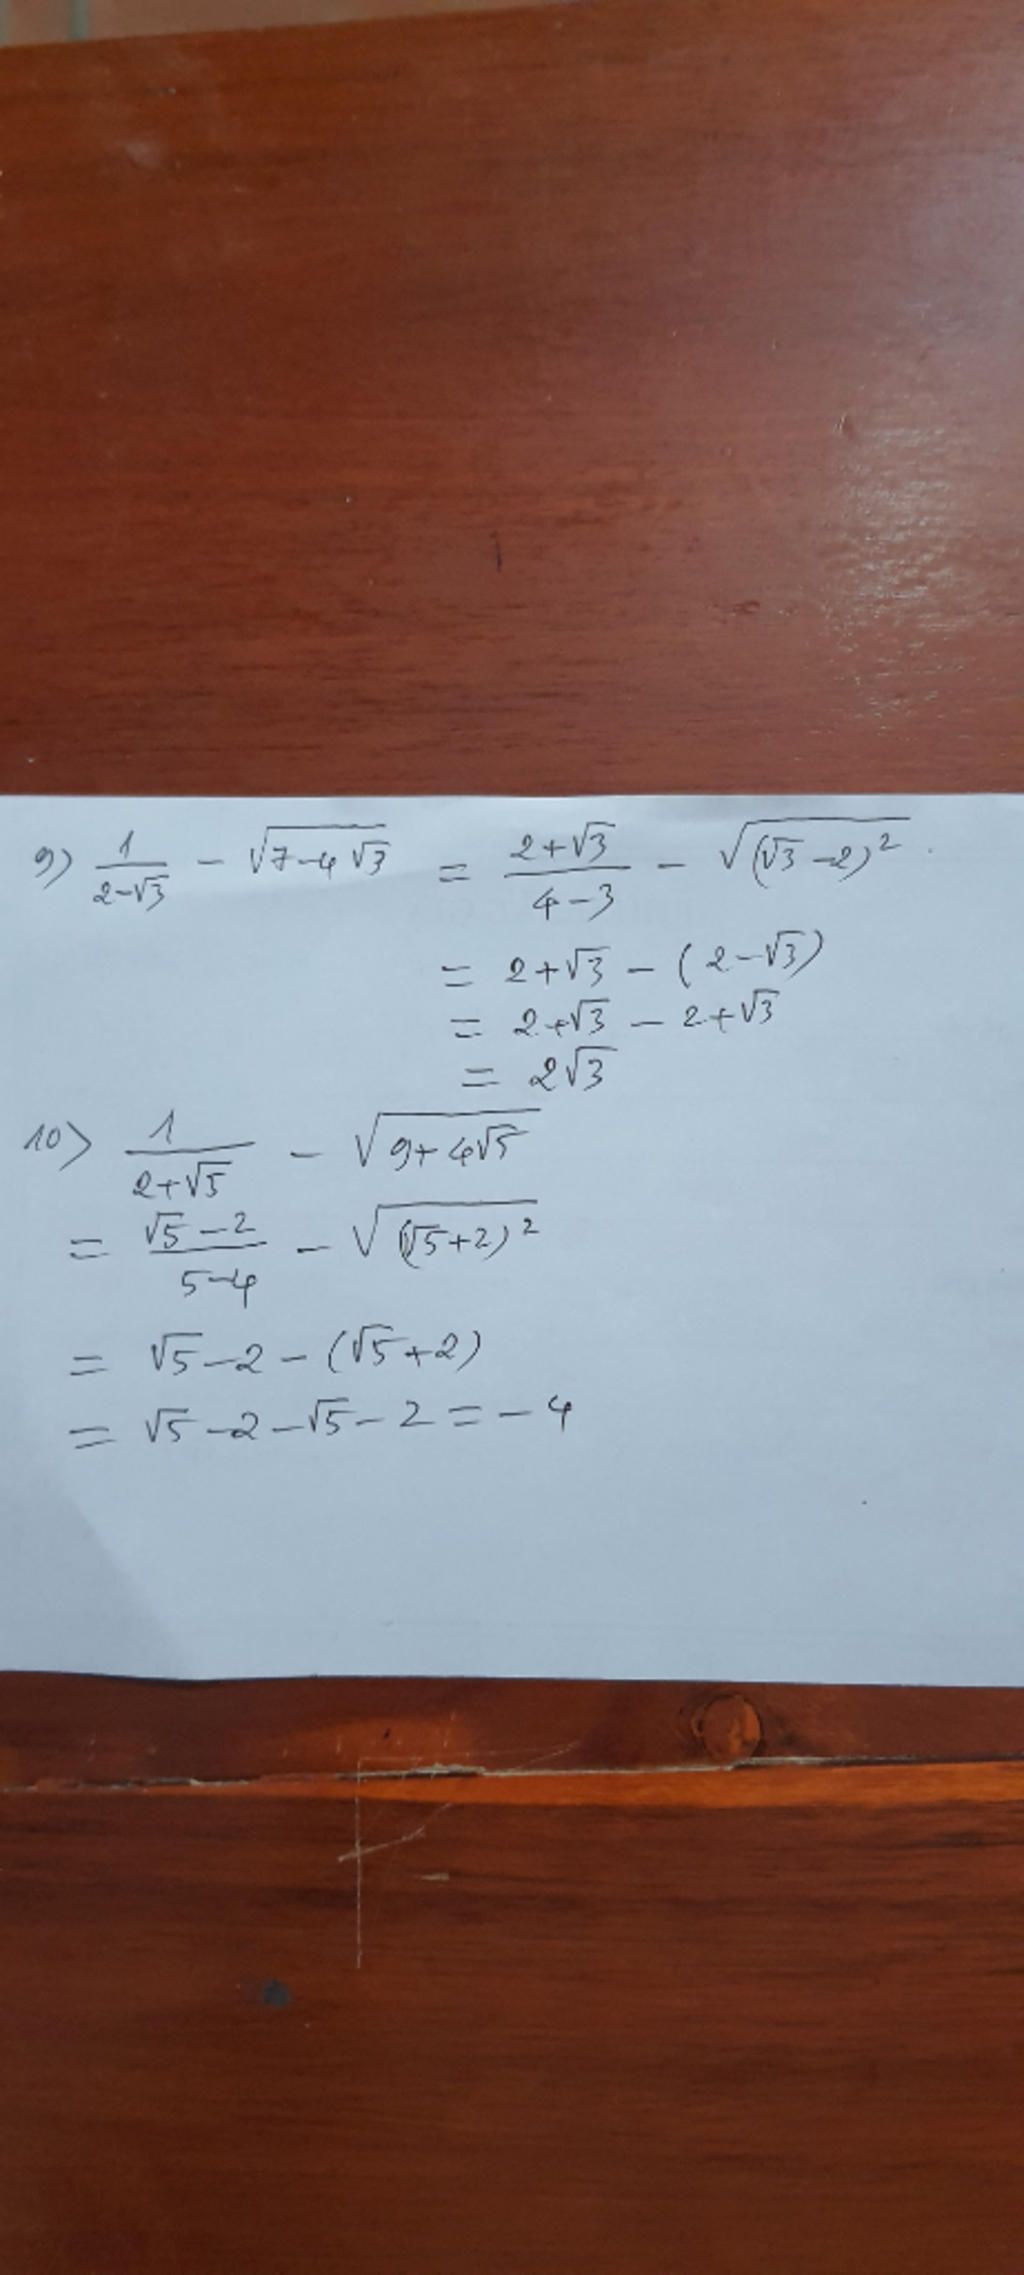 9) 1/(2-√3) - √(7-4√3) = (2+√3)/(4-3) - √((√3-2)²)
= 2+√3 - (2-√3)
= 2+√3 - 2+√3
= 2√3
10) 1/(2+√5) - √(9+4√5)
= (√5-2)/(5-4) - √((√5+2)²)
= √5-2-(√5+2)
= √5-2-√5-2=-4